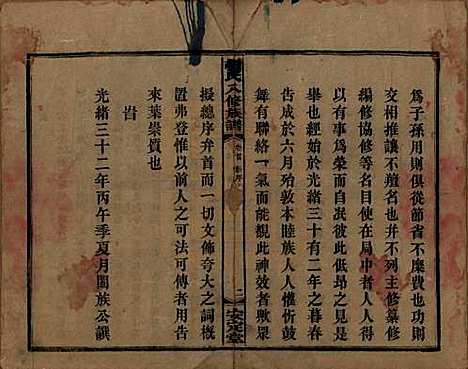 爲子孫用則俱從節省不糜費也功則
交相推讓不羶名也并不列主修纂修
編修協修等名目使在局中者人人得
以有事爲榮而自泯彼此低昂之見是
舉也經始於光緒三十有二年之暮春
告成於六月殆敦本睦族人人懽忻鼓
舞有聯絡一氣而能覩此神效者歟衆
八修族譜
二
安定堂
擬總序弁首而一切文飾夸大之詞概
置弗登惟以前人之可法可傳者用告
來葉崇質也
旹
光緒三十二年丙午季夏月闔族公譔